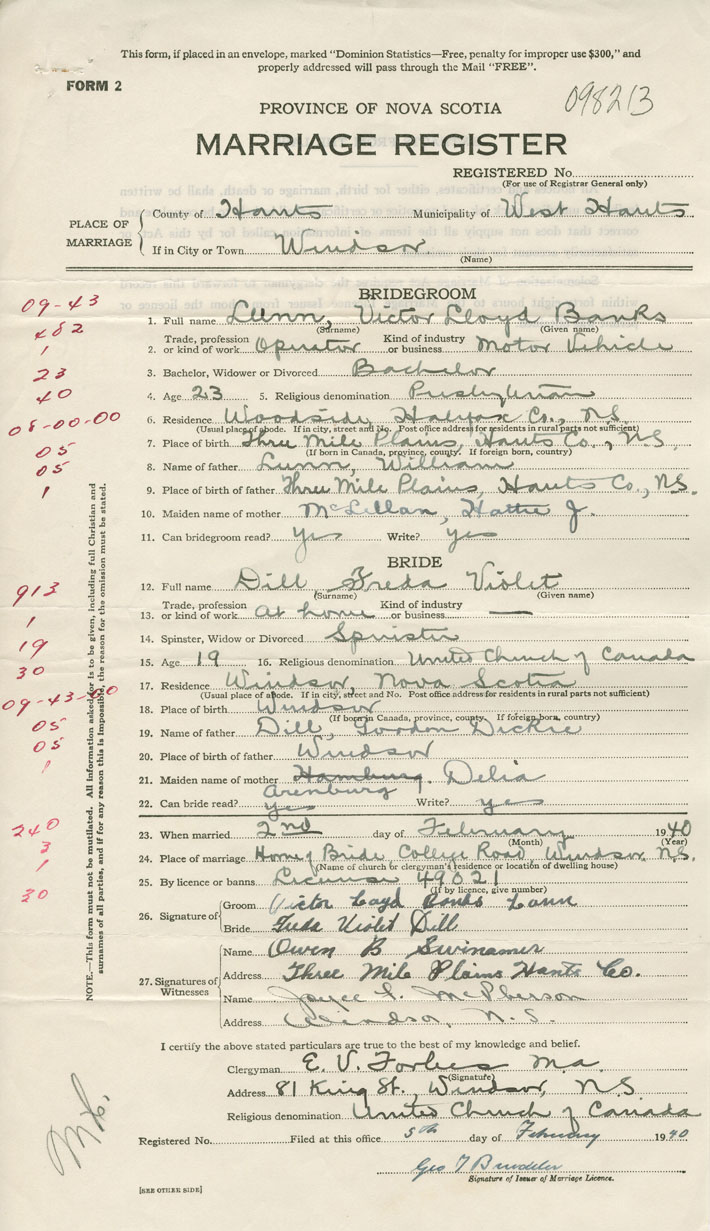 This form, if placed in an envelope, marked "Dominion Statistics—Free, penalty for improper use $300," and
properly addressed will pass through the Mail "FREE".
FORM 2
098213
PROVINCE OF NOVA SCOTIA
MARRIAGE REGISTER
REGISTERED No.
(For use of Registrar General only)
PLACE OF MARRIAGE
County of Hants Municipality of West Hants
If in City or Town Windsor
(Name)
BRIDEGROOM
09-43
1. Full name Lunn, Victor Lloyd Banks
(Surname) (Given name)
482
Trade, profession Kind of industry
2. or kind of work Operator or business Motor Vehicle
1
3. Bachelor, Widower or Divorced Bachelor
23
4. Age 23 5. Religious denomination Presbyterian
40
6. Residence Woodside, Halifax Co., N.S.
(Usual place of abode. If in city, street and No. Post office address for residents in rural parts not sufficient)
08-00-00
7. Place of birth Three Mile Plains, Hants Co., N.S.
(If born in Canada, province, county. If foreign born, country)
05
8. Name of father Lunn, William
05
9. Place of birth of father Three Mile Plains, Hants Co., N.S.
1
10. Maiden name of mother McLellan, Hattie J.
11. Can bridegroom read? Yes Write? Yes
BRIDE
913
12. Full name Dill Freda Violet
(Surname) (Given name)
Trade, profession Kind of industry
13. or kind of work At home or business —
1
14. Spinster, Widow or Divorced Spinster
19
15. Age 19 16. Religious denomination United Church of Canada
30
17. Residence Windsor, Nova Scotia
(Usual place of abode. If in city, street and No. Post office address for residents in rural parts not sufficient)
09-43-00
18. Place of birth Windsor
(If born in Canada, province, county. If foreign born, country)
05
19. Name of father Dill, Gordon Dickie
05
20. Place of father Windsor
1
21. Maiden name of mother Hamburg. Delia
Arenburg
22. Can bride read? yes Write? yes
240
23. When married 2nd day of February 1940
(Month) (Year)
3
24. Place of marriage Home of Bride, College Road, Windsor, N.S.
(Name of church or clergyman's residence or location of dwelling house)
1
25. By licence or banns License 49021
(If by licence, give number)
30
26. Signature of
Groom Victor Loyd Banks Lunn
Bride Freda Violet Dill
27. Signatures of Witnesses
Name Owen B Swinamer
Address Three Mile Plains Hants Co.
Name Joyce L. McPherson
Address Windsor, N.S.
NOTE.—This form must not be mutilated. All information asked for is to be given, including full Christian and
surnames of all parties, and if for any reason this is impossible, the reason for the omission must be stated.
I certify the above stated particulars are true to the best of my knowledge and belief.
Clergyman E. V. Forbes M.A.
(Signature)
Address 81 King St., Windsor, N.S.
Religious denomination United Church of Canada
Registered No. Filed at this office 5th day of February 1940
Geo
Signature of Issuer of Marriage Licence.
[SEE OTHER SIDE]